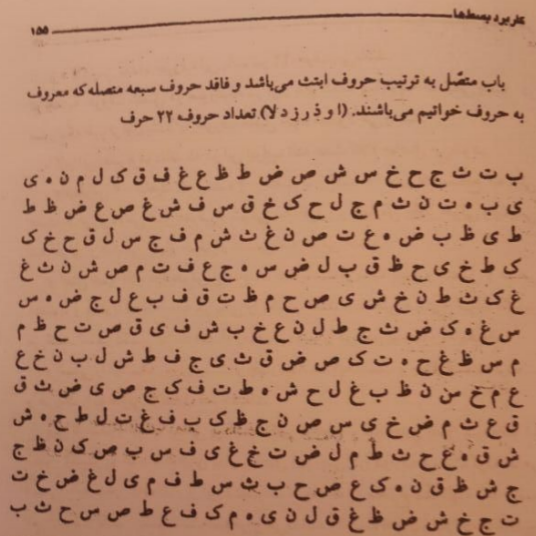 کاربرد بسط‌ها
۱۵۵
باب متصّل به ترتیب حروف ابتث می‌باشد و فاقد حروف سبعه متصله که معروف
به حروف خواتیم می‌باشند. (ا و ذ ر ز د لا) تعداد حروف ۲۲ حرف
ب ت ث ج ح خ س ش ص ض ط ظ ع غ ف ق ک ل م ن ه ی
ی ب ه ت ن ث م ج ل ح ک خ ق س ف ش غ ص ع ض ظ ط
ط ی ظ ب ض ه ع ت ص ن غ ث ش م ف ج س ل ق ح خ ک
ک ط خ ی ح ظ ق ب ل ض س ه ج ع ف ت م ص ش ن ث غ
غ ک ث ط ن خ ش ی ص ح م ظ ت ق ف ب ع ل ج ض ه س
س غ ه ک ض ث ج ط ل ن ع خ ب ش ف ی ق ص ت ح ظ م
م س ظ غ ح ه ت ک ص ض ق ث ی ج ف ط ش ل ب ن خ ع
ع م خ س ن ظ ب غ ل ح ش ه ط ت ف ک ج ص ی ض ث ق
ق ع ث م ض خ ی س ص ن ج ظ ک ب ف غ ت ل ط ح ه ش
ش ق ه ع ح ث ط م ل ض ت خ غ ی ف س ب ص ک ن ظ ج
ج ش ظ ق ن ه ک ع ص ح ب ث س ط ف م ی ل غ ض خ ت
ت ج خ ش ض ظ غ ق ل ن ی ه م ک ف ع ط ص س ح ث ب